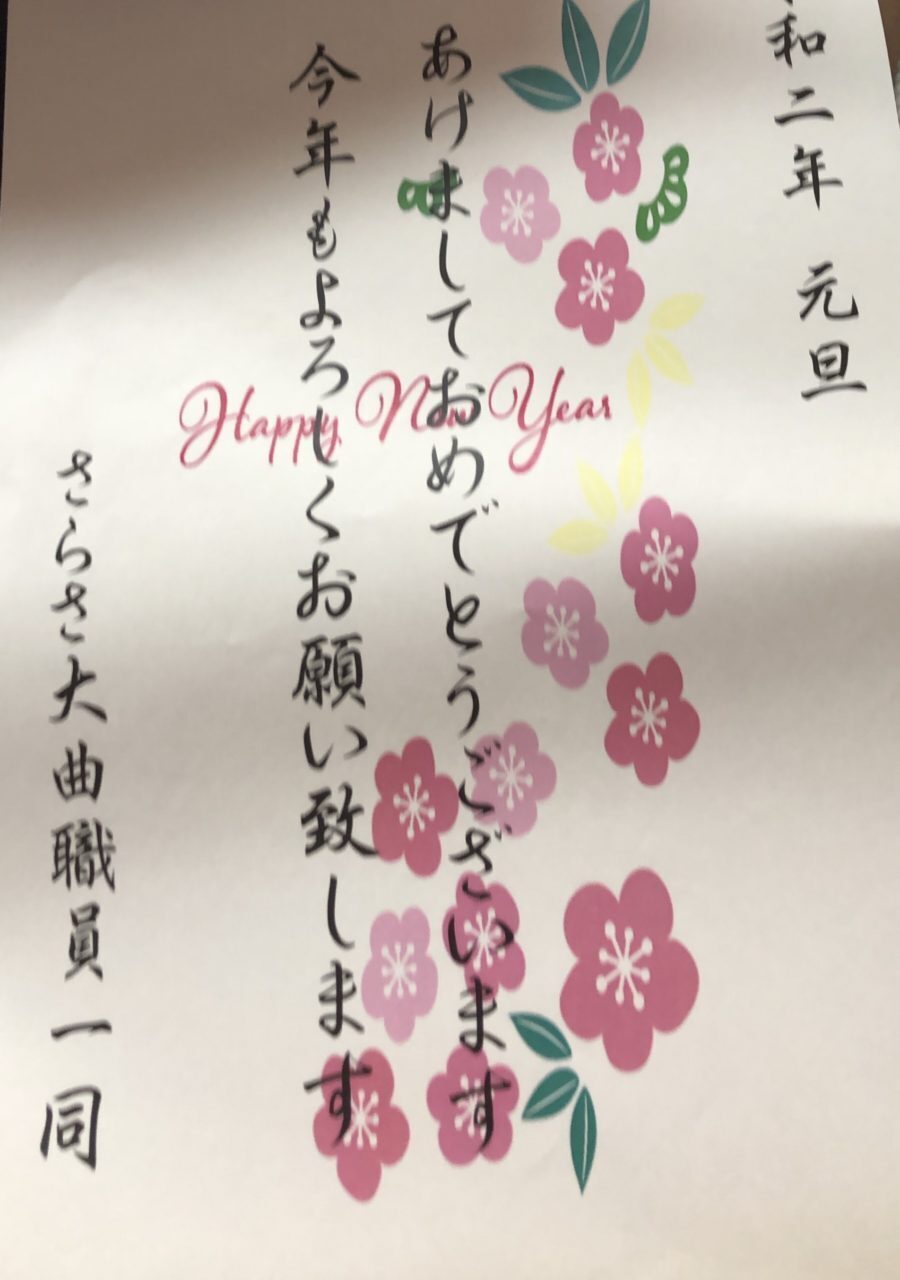 和二年 元旦
あけましておめでとうございます
今年もよろしくお願い致します
さらさ大曲職員一同
Happy New Year